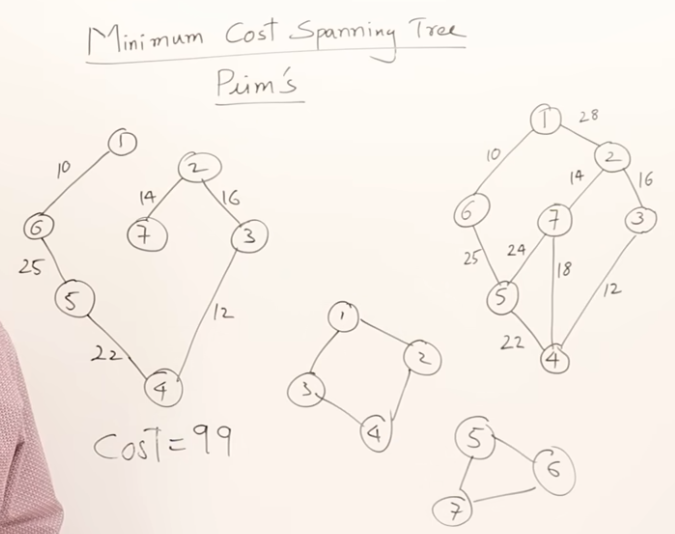 Minimum Cost Spanning Tree
Prim's
1
10
6
25
5
22
4
12
3
16
2
14
7
Cost=99
1
2
3
4
1
28
2
10
14
16
6
7
3
25
24
18
12
5
22
4
5
6
7